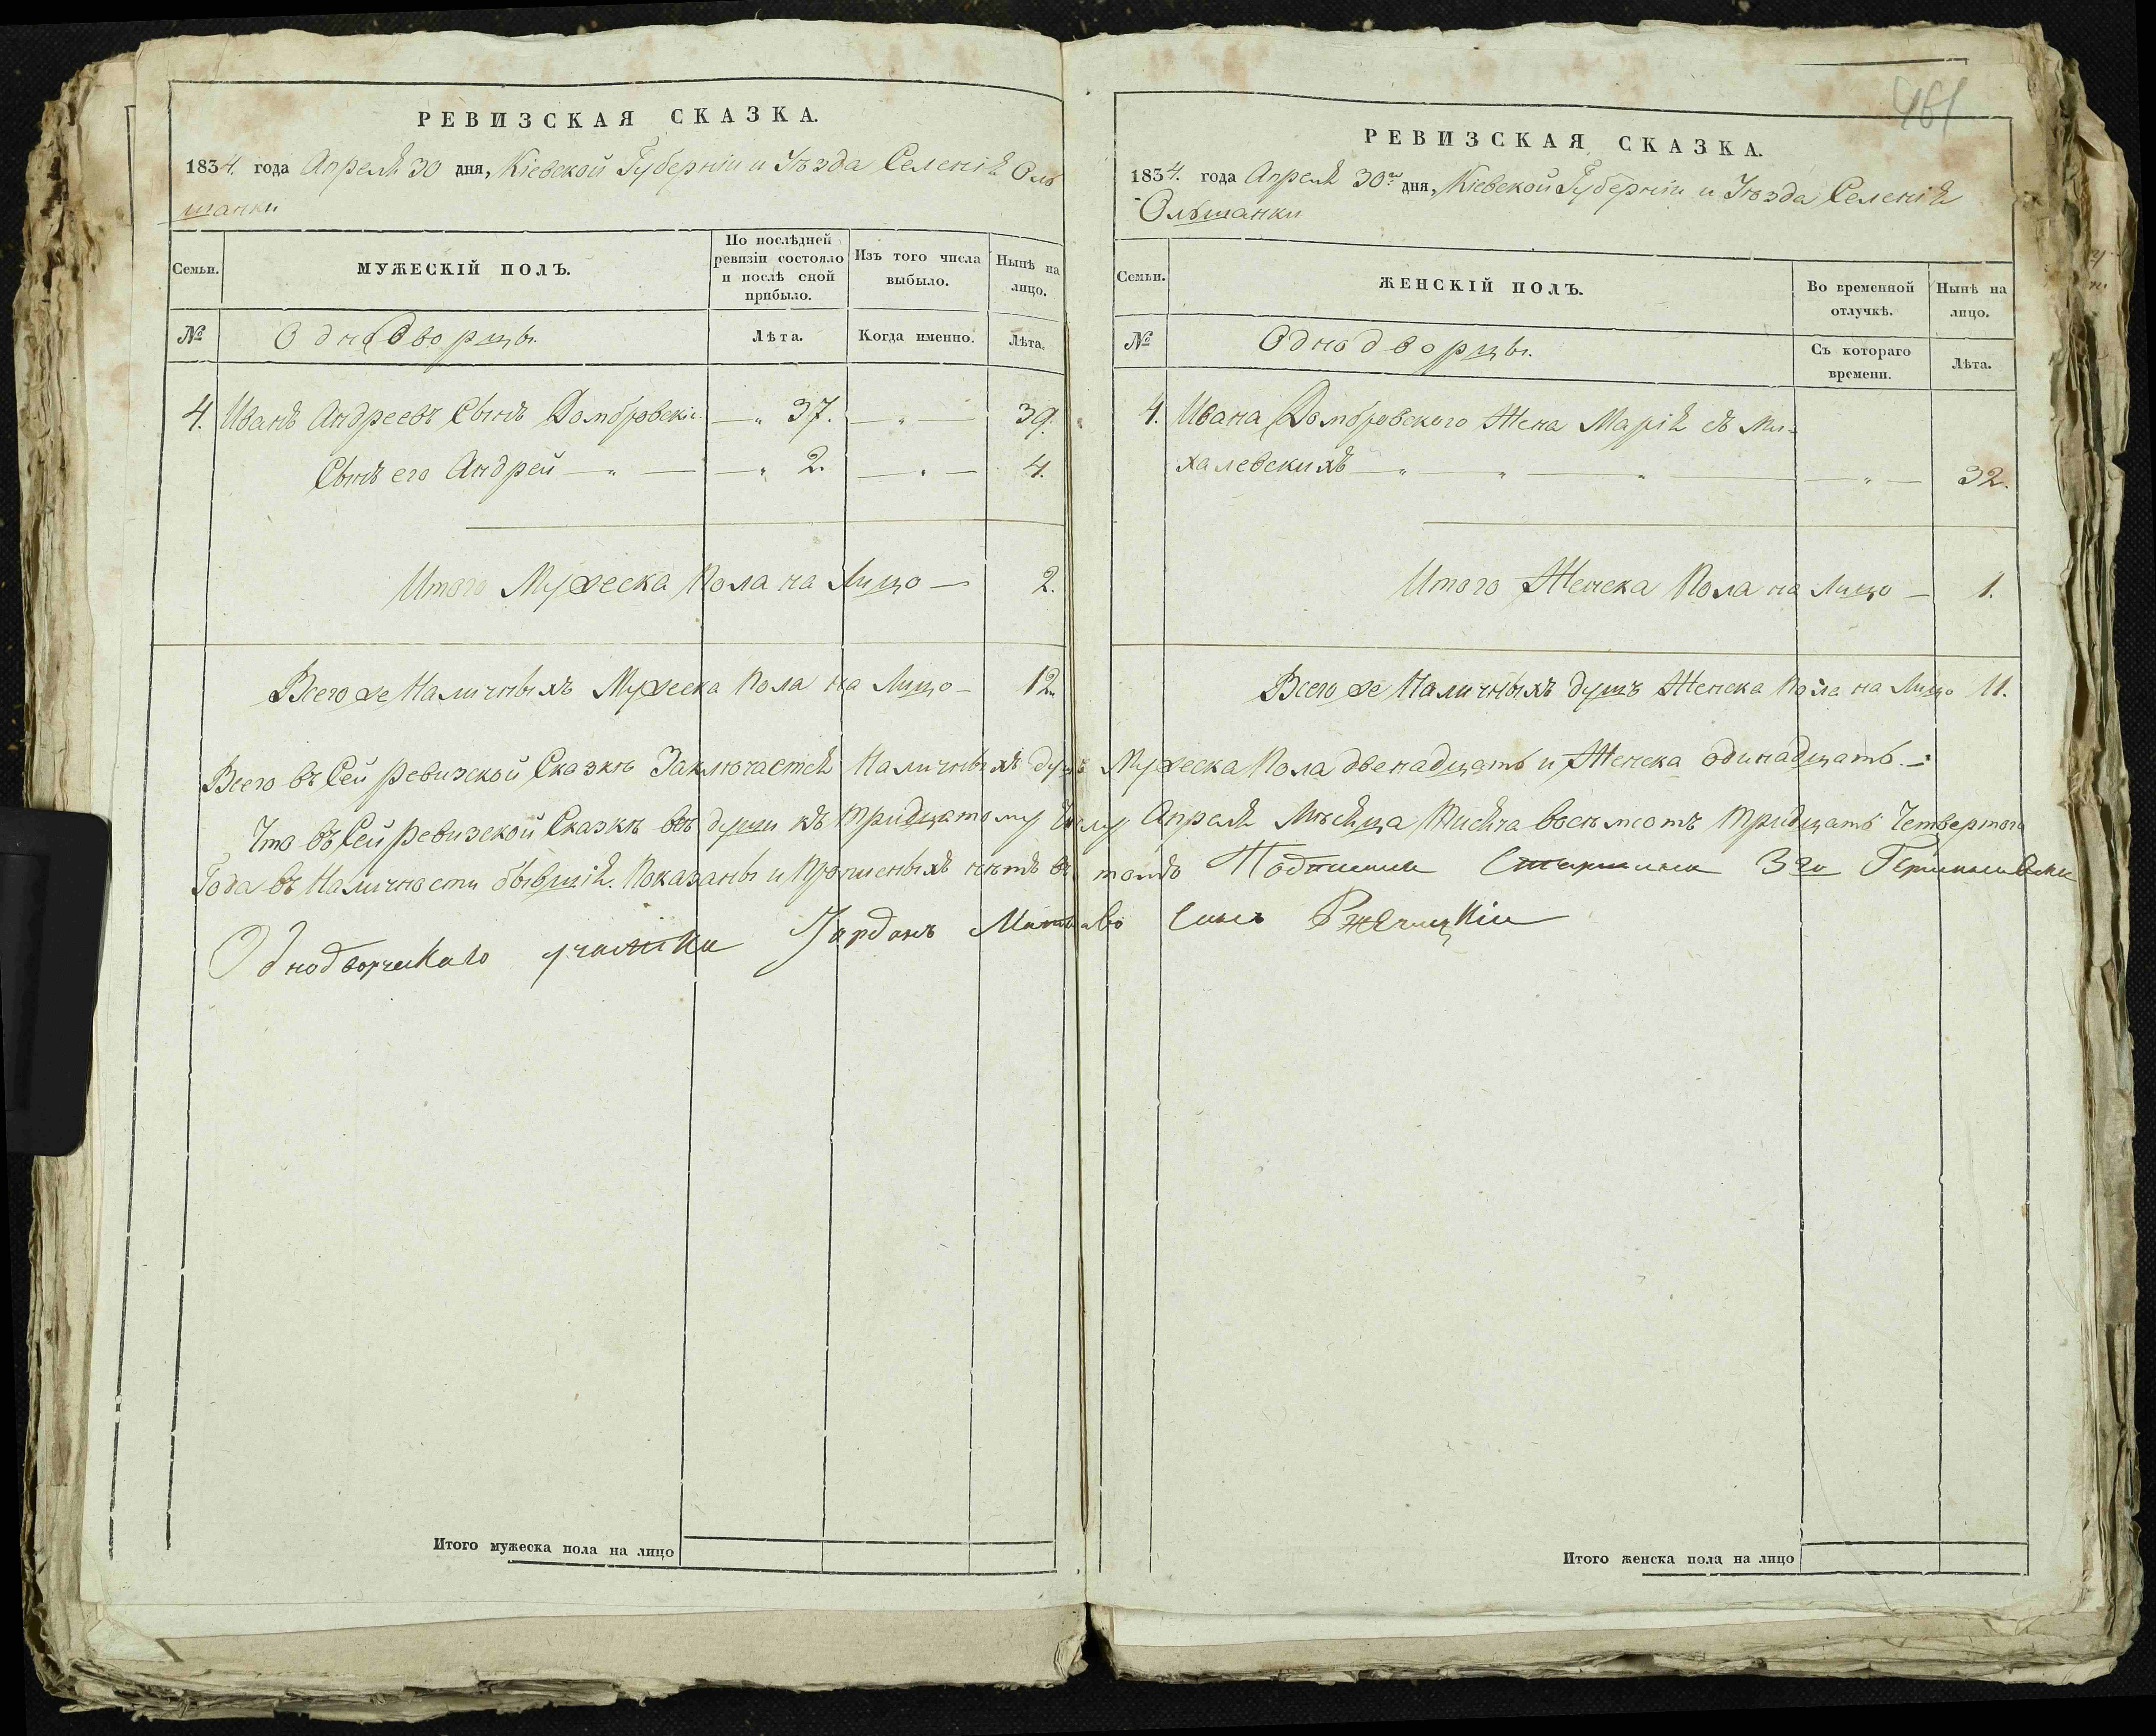 РЕВИЗСКАЯ СКАЗКА.
1834. года Апреля 30 дня, Кіевской Губерніи и Уѣзда Селенія Оль
шанки
Семьи.
МУЖЕСКІЙ ПОЛЪ.
По послѣдней ревизіи состояло и послѣ оной прибыло.
Изъ того числа выбыло.
Нынѣ на лицо.
№
Однодворцы.
Лѣта.
Когда именно.
Лѣта.
4. Иванъ Андреевъ Сынъ Домбровскій — „ 37. — „ — 39.
Сынъ его Андрей — „ — — „ 2. — „ — 4.
Итого Мужеска Пола на Лицо — 2.
Всего же Наличныхъ Мужеска Пола на Лицо — 12.
РЕВИЗСКАЯ СКАЗКА.
461
1834. года Апреля 30го дня, Кіевской Губерніи и Уѣзда Селенія
Ольшанки
Семьи.
ЖЕНСКІЙ ПОЛЪ.
Во временной отлучкѣ.
Нынѣ на лицо.
№
Однодворцы.
Съ котораго времени.
Лѣта.
4. Ивана Домбровского Жена Марія съ Ми-
халевскихъ — „ — „ — „ — — „ — 32.
Итого Женска Пола на Лицо — 1.
Всего же Наличныхъ душъ Женска Пола на Лицо 11.
Всего въ Сей Ревизской Сказкѣ Заключается Наличныхъ душъ Мужеска Пола двенадцать и Женска одинадцать. —
Что въ Сей Ревизской Сказкѣ всѣ души къ тридцатому Числу Апреля Мѣсяца Тисяча восѣмсотъ тридцать Четвертого
Года въ Наличности бывшія. Показаны и Прописныхъ нѣтъ въ томъ 3го
Однодворческаго участка Іорданъ Сынъ Ржечицкій
Итого мужеска пола на лицо
Итого женска пола на лицо